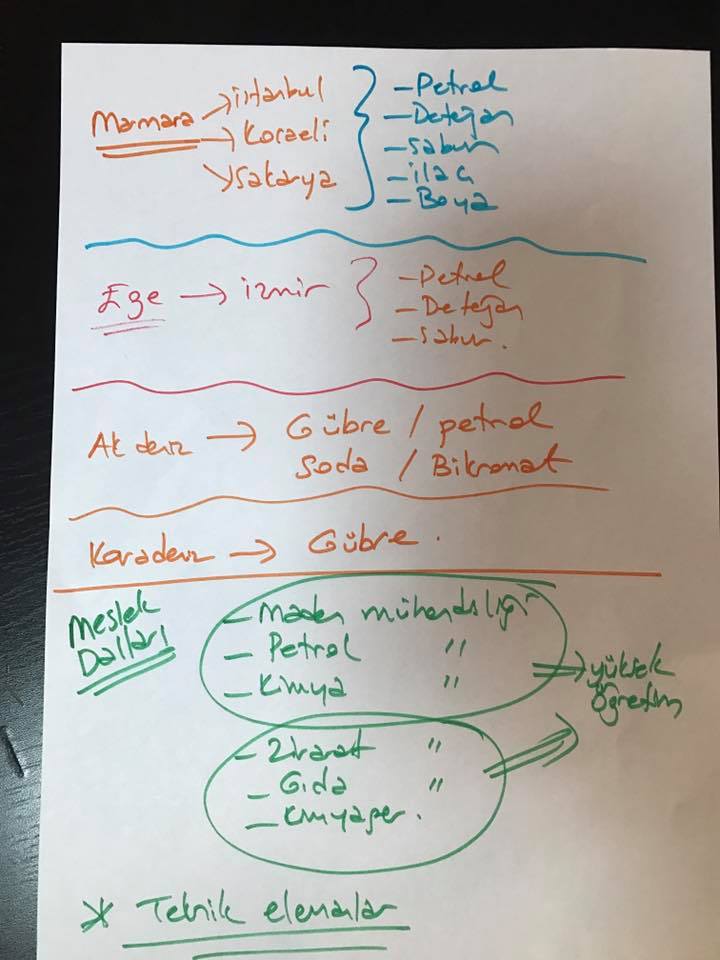 Marmara → istanbul
→ Kocaeli
→ Sakarya
– Petrol
– Deteğan
– sabun
– ilaç
– Boya
Ege → izmir
– Petrol
– Deteğan
– Sabun.
Akdeniz → Gübre / petrol
Soda / Bikromat
Karadeniz → Gübre.
Meslek
Dalları
– Maden mühendisliği
– Petrol "
– Kimya "
⇒ yüksek
öğretim
– Ziraat "
– Gıda "
– Kimyager.
* Teknik elemanlar